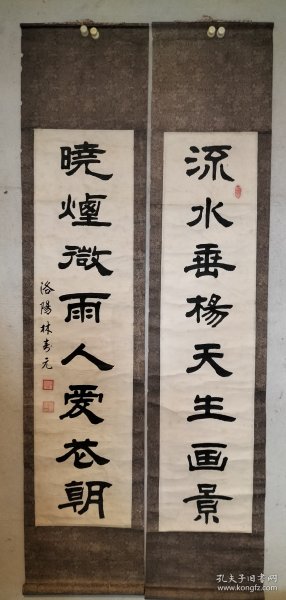 流水垂楊天生画景
暁煙微雨人爱花朝
洛陽林寿元
孔夫子旧书网
www.kongfz.com